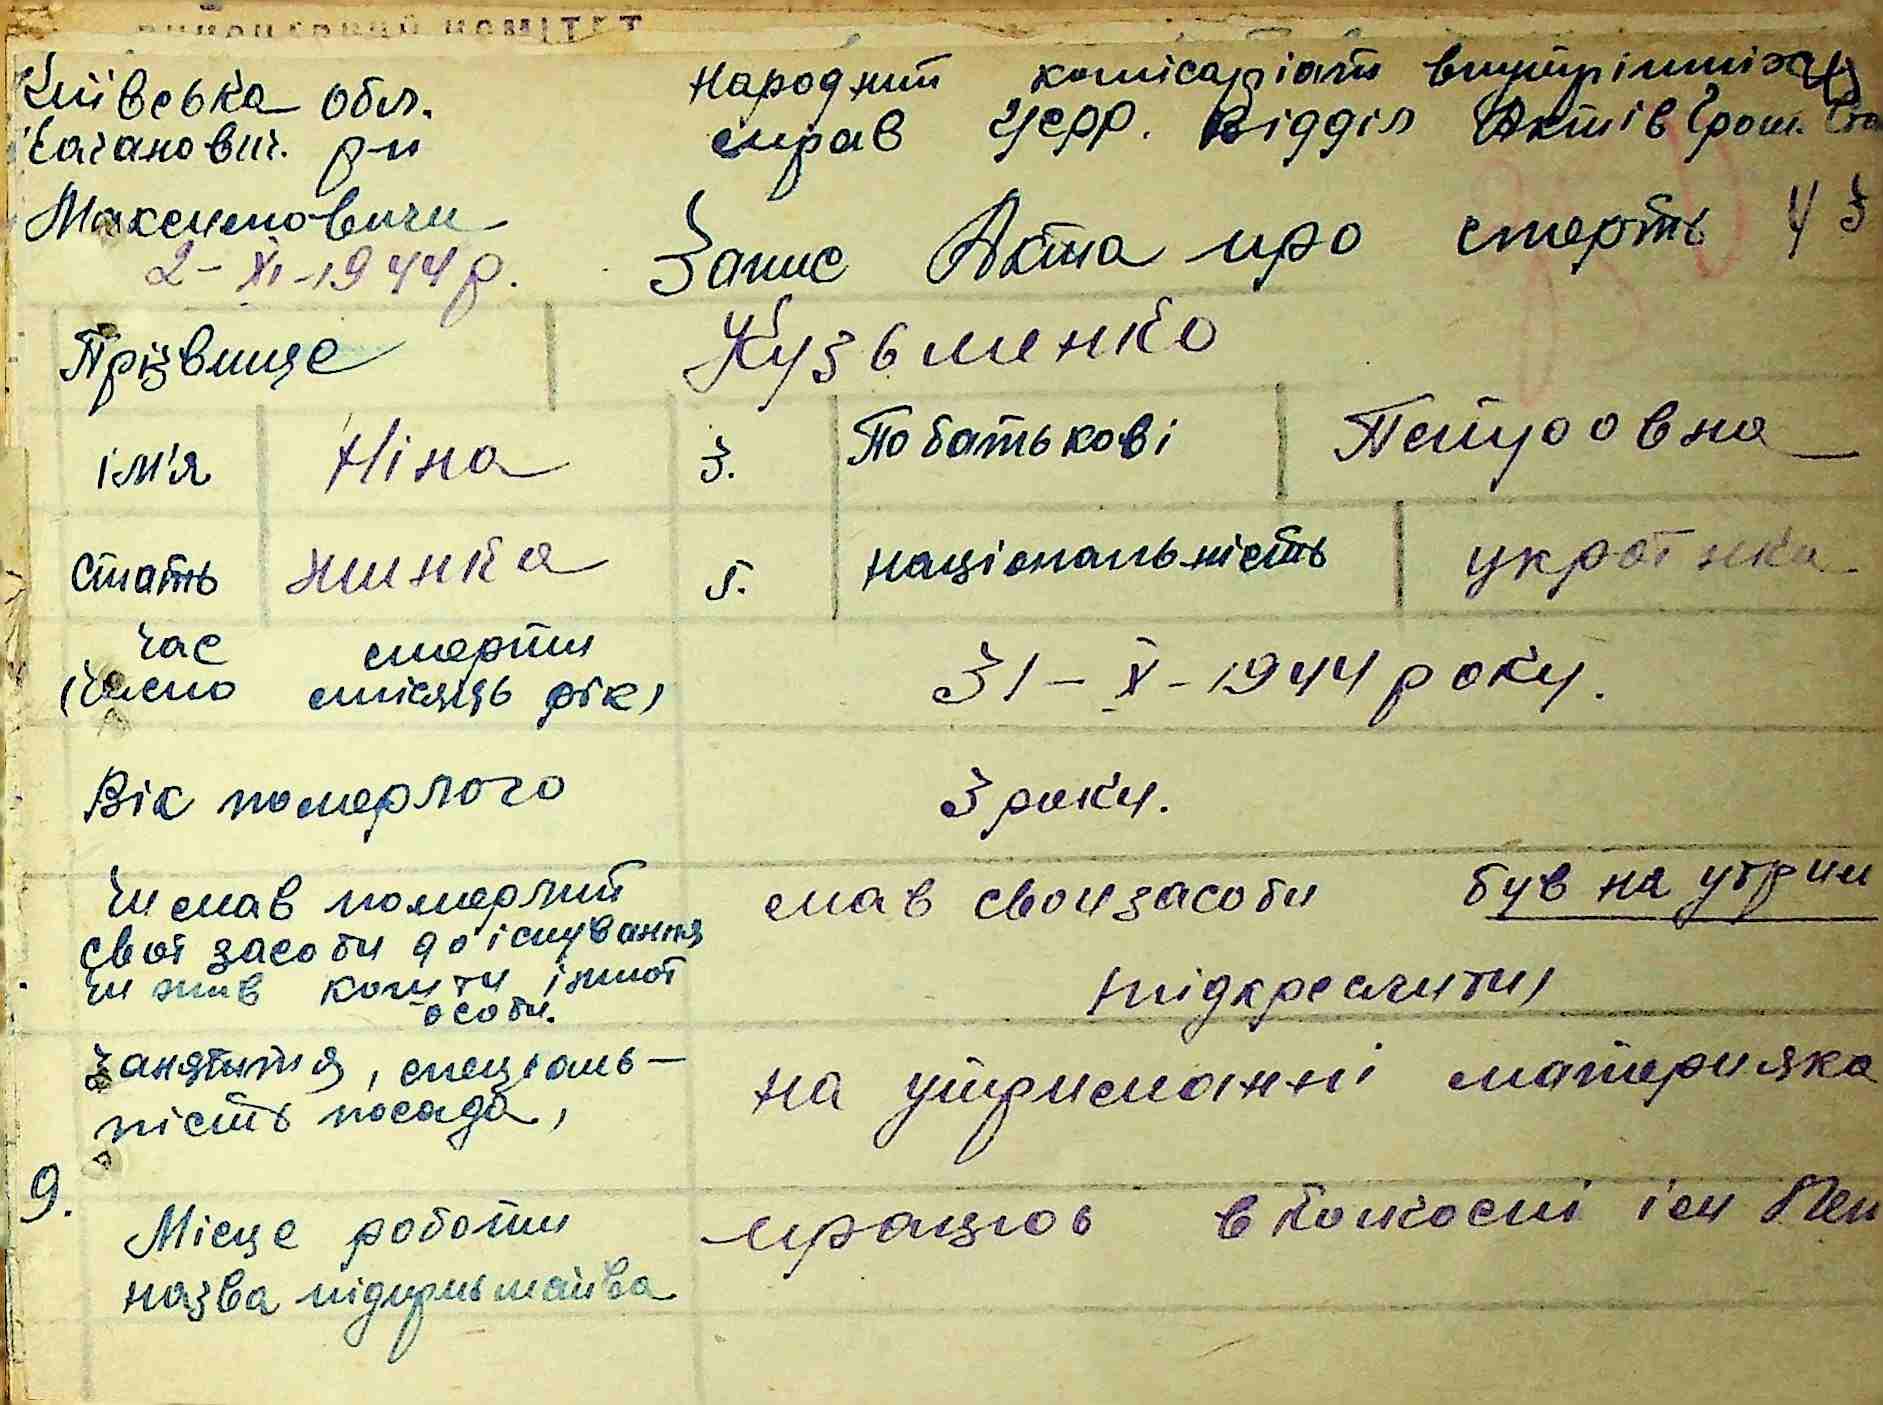 Київська обл.
Каганович. р-н
Максимовичи
2-XI-1944 р.
Народний комісаріат внутрішніх
справ УСРР. Відділ Актів Гром. Стан
Запис Акта про смерть № 3
Прізвище Кузьменко
ім'я Ніна 3. По батькові Петровна
стать жинка 5. національність українка
час смерти
(число місяць рік) 31-X-1944 року.
Вік померлого 3 роки.
Чи мав померлий мав свои засоби був на утрим
свої засоби до існування
чи жив кошти іншої підкреслити)
особи.
Заняття, спеціаль- на утриманні матери яка
ність посада,
9. Місце роботи працює в колхосні ім Лен
назва підприємства